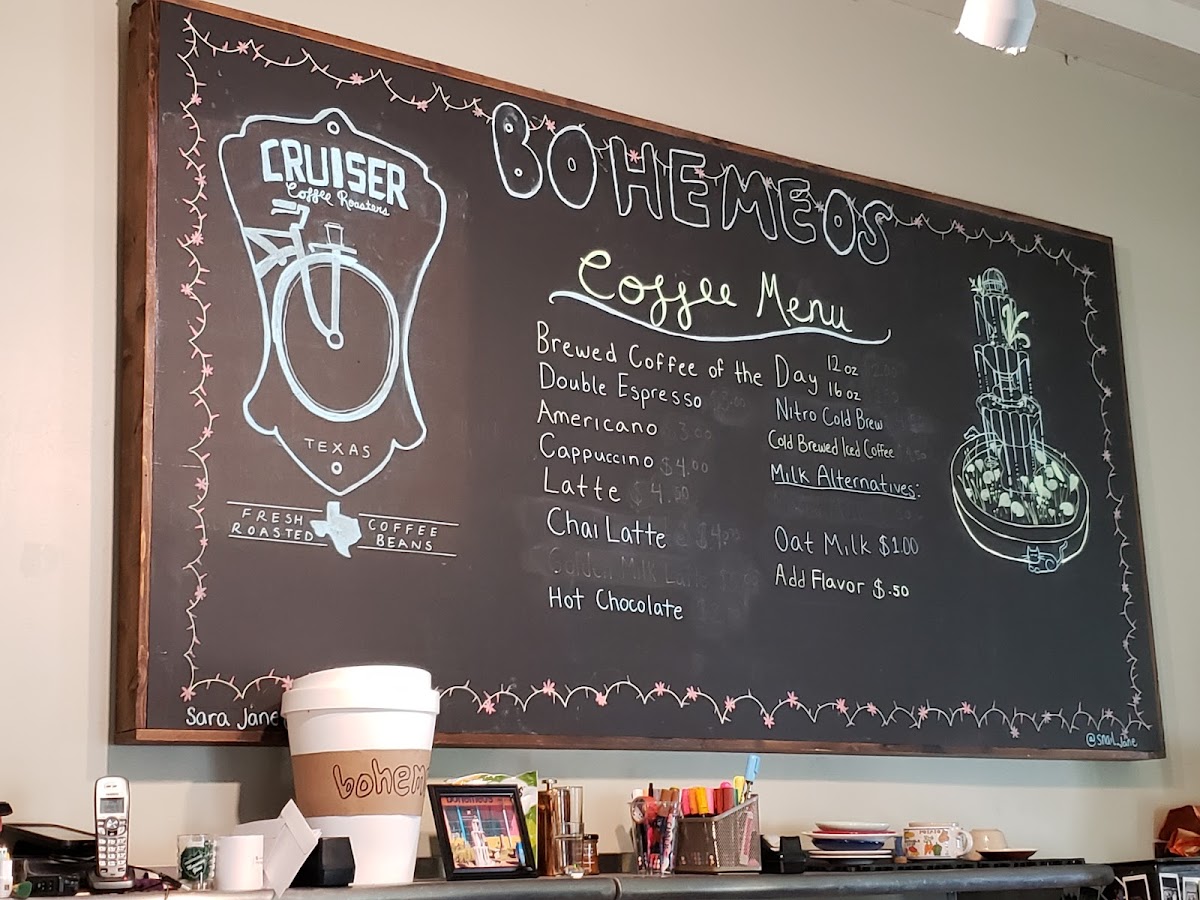 CRUISER
Coffee Roasters
TEXAS
FRESH ROASTED
COFFEE BEANS
BOHEMEOS
Coffee Menu
Brewed Coffee of the Day 12 oz
16 oz
Double Espresso
Americano
Cappuccino $4.00
Latte $4.00
Chai Latte $4.00
Golden Milk Latte
Hot Chocolate
Nitro Cold Brew
Cold Brewed Iced Coffee
Milk Alternatives:
Oat Milk $1.00
Add Flavor $.50
Sara Jane
@snail_jane
bohem